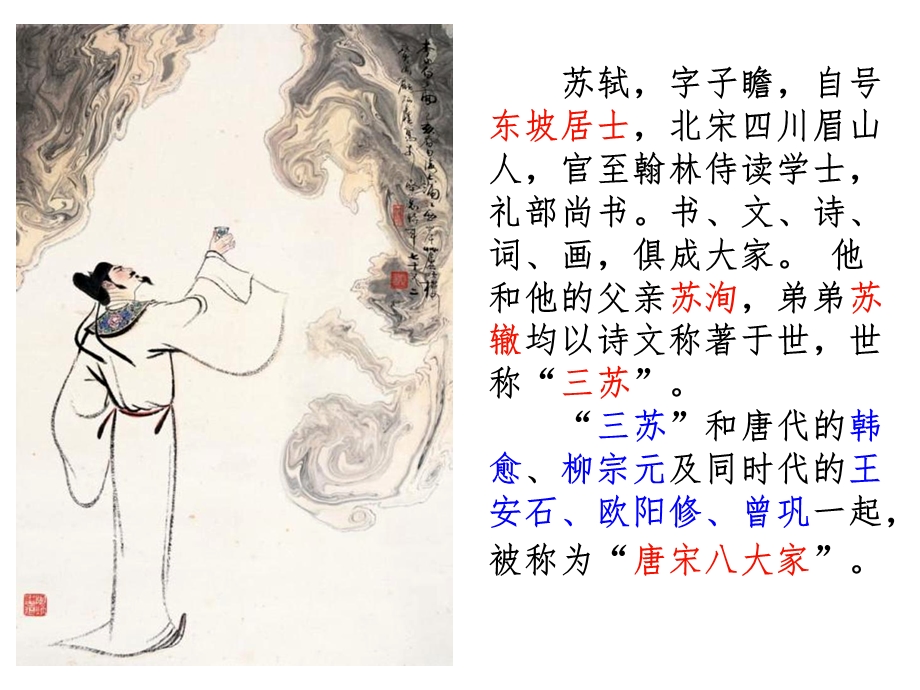 苏轼，字子瞻，自号
东坡居士，北宋四川眉山
人，官至翰林侍读学士，
礼部尚书。书、文、诗、
词、画，俱成大家。 他
和他的父亲苏洵，弟弟苏
辙均以诗文称著于世，世
称“三苏”。
“三苏”和唐代的韩
愈、柳宗元及同时代的王
安石、欧阳修、曾巩一起，
被称为“唐宋八大家”。